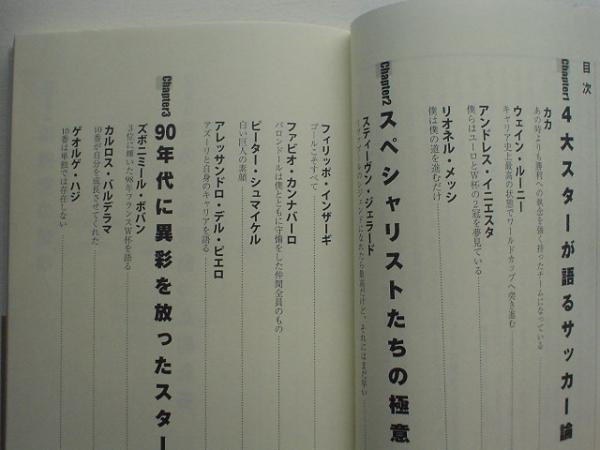 目次
Chapter1 4大スターが語るサッカー論
カカ
あの時よりも勝利への執念を強く持ったチームになっている
ウェイン・ルーニー
キャリア史上最高の状態でワールドカップへ突き進む
アンドレス・イニエスタ
僕らはユーロとW杯の2冠を夢見ている
リオネル・メッシ
僕は僕の道を進むだけ
Chapter2 スペシャリストたちの極意
スティーヴン・ジェラード
リヴァプールのレジェンドになれたら最高だけど、それにはまだ早い
フィリッポ・インザーギ
ゴールこそすべて
ファビオ・カンナバーロ
バロンドールは僕とともに守備をした仲間全員のもの
ピーター・シュマイケル
白い巨人の素顔
アレッサンドロ・デル・ピエロ
アズーリと自身のキャリアを語る
Chapter3 90年代に異彩を放ったスター
ズボニミール・ボバン
3位に輝いた98年フランスW杯を語る
カルロス・バルデラマ
10番が自分を成長させてくれた
ゲオルゲ・ハジ
10番は単独では存在しない